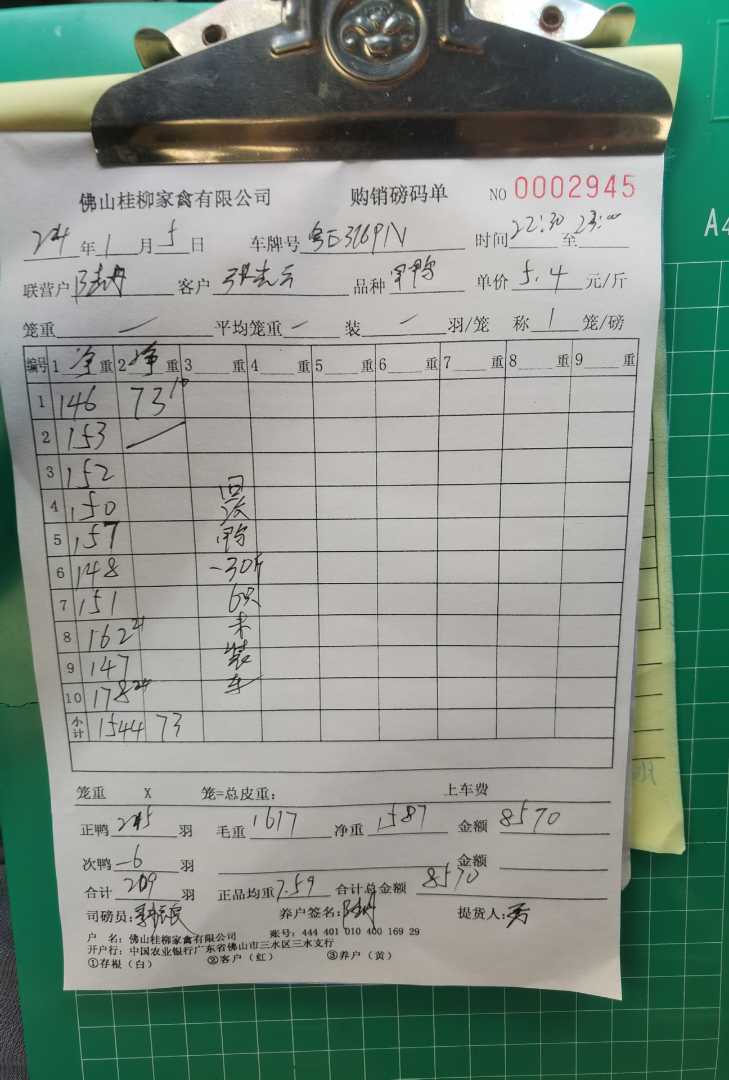 佛山桂柳家禽有限公司 购销磅码单 NO 0002945
24年1月5日 车牌号 时间22:30至23:00
联营户 客户 品种 单价5.4元/斤
笼重 — 平均笼重 — 装 — 羽/笼 称 1 笼/磅
编号 1 净重 2 净重 3 重 4 重 5 重 6 重 7 重 8 重 9 重
1 146 73 10
2 153 —
3 152
4 150 回
5 157 鸭
6 148 -30斤
7 151 6只
8 162 21 未
9 147 装
10 178 24 车
小计 1544 73
笼重 X 笼=总皮重: 上车费
正鸭 215 羽 毛重 1617 净重 1587 金额 8570
次鸭 -6 羽 金额
合计 209 羽 正品均重 7.59 合计总金额 8570
司磅员: 养户签名: 提货人:
户 名: 佛山桂柳家禽有限公司 账号: 444 401 010 400 169 29
开户行: 中国农业银行广东省佛山市三水区三水支行
①存根(白) ②客户(红) ③养户(黄)
A4